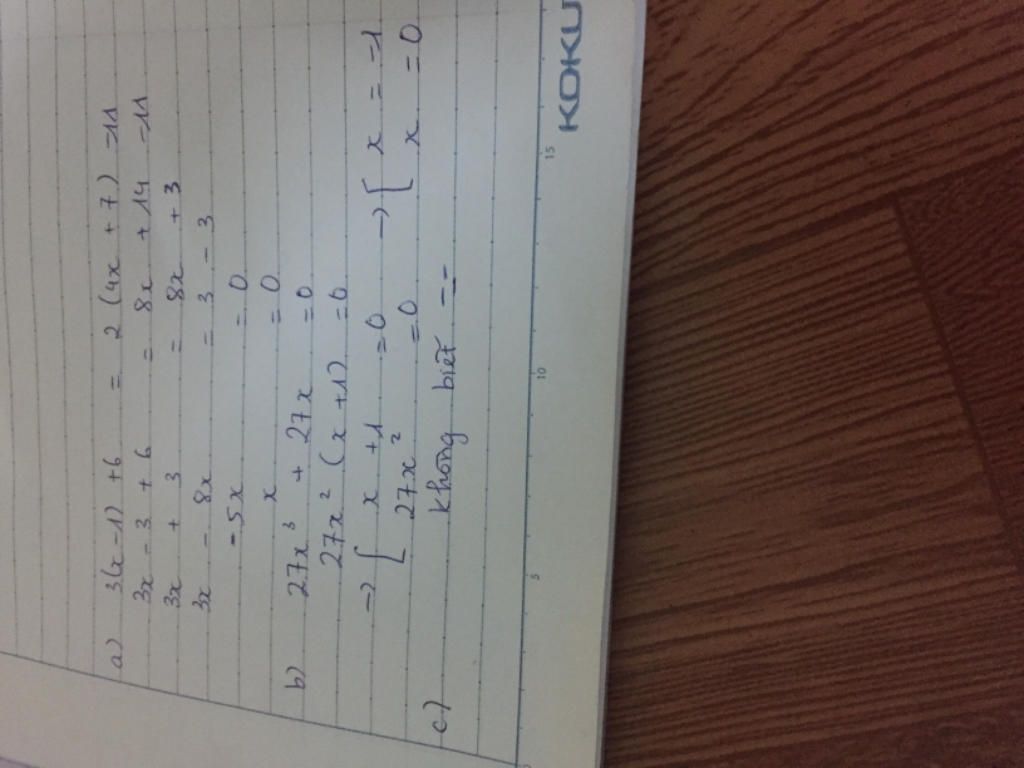 a) 3(x-1) + 6 = 2 (4x + 7) - 11
3x - 3 + 6 = 8x + 14 - 11
3x + 3 = 8x + 3
3x - 8x = 3 - 3
- 5x = 0
x = 0
b) 27x³ + 27x = 0
27x² (x + 1) = 0
→ [ x + 1 = 0 → [ x = -1
27x² = 0 x = 0
c) không biết --
5 10 15
KOKU